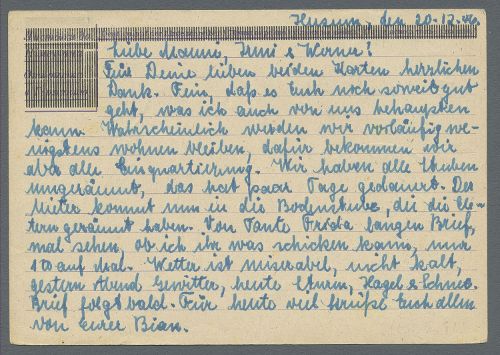 Husum, den 20.12.46.
Liebe Manni, Irmi & Werner!
Für Deine lieben beiden Karten herzlichen
Dank. Fein, daß es Euch noch soweit gut
geht, was ich auch von uns behaupten
kann. Wahrscheinlich werden wir vorläufig we-
nigstens wohnen bleiben, dafür bekommen wir
aber alle Einquartierung. Wir haben alle Stuben
umgeräumt, das hat paar Tage gedauert. Der
Mieter kommt nun in die Bodenstube, die die El-
tern geräumt haben. Von Tante Frida langen Brief,
mal sehen, ob ich ihr was schicken kann, nur
so auf mal. Wetter ist miserabel, nicht kalt,
gestern Abend Gewitter, heute Sturm, Hagel & Schnee.
Brief folgt bald. Für heute viel Grüße Euch allen
von Eurer Bian.